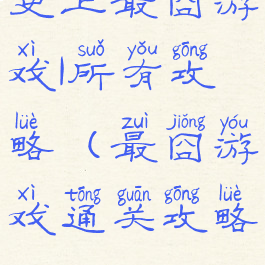 史上最囧游
xì suǒ yǒu gōng
戏|所有攻
lüè zuì jiǒng yóu
略(最囧游
xì tōng guān gōng lüè
戏通关攻略